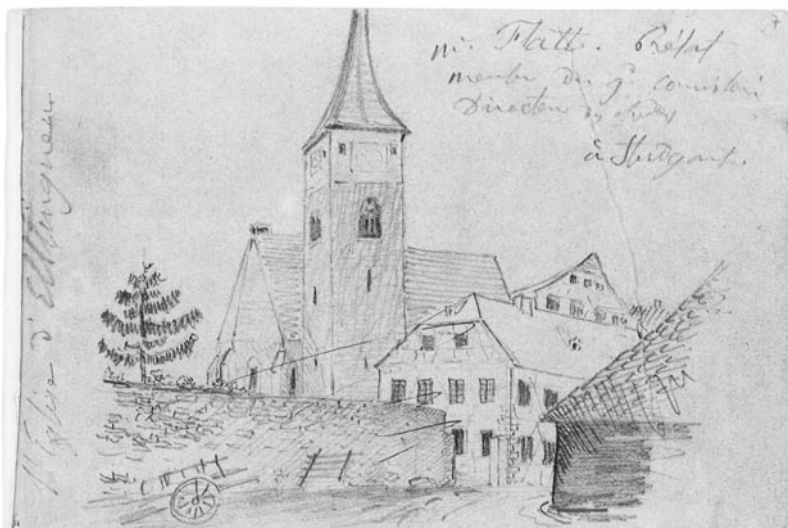 mr. Flatt. Prélat
membre du gd. consistoire
Directeur des études
à Stutgart.
l'Eglise d'Eltinguen